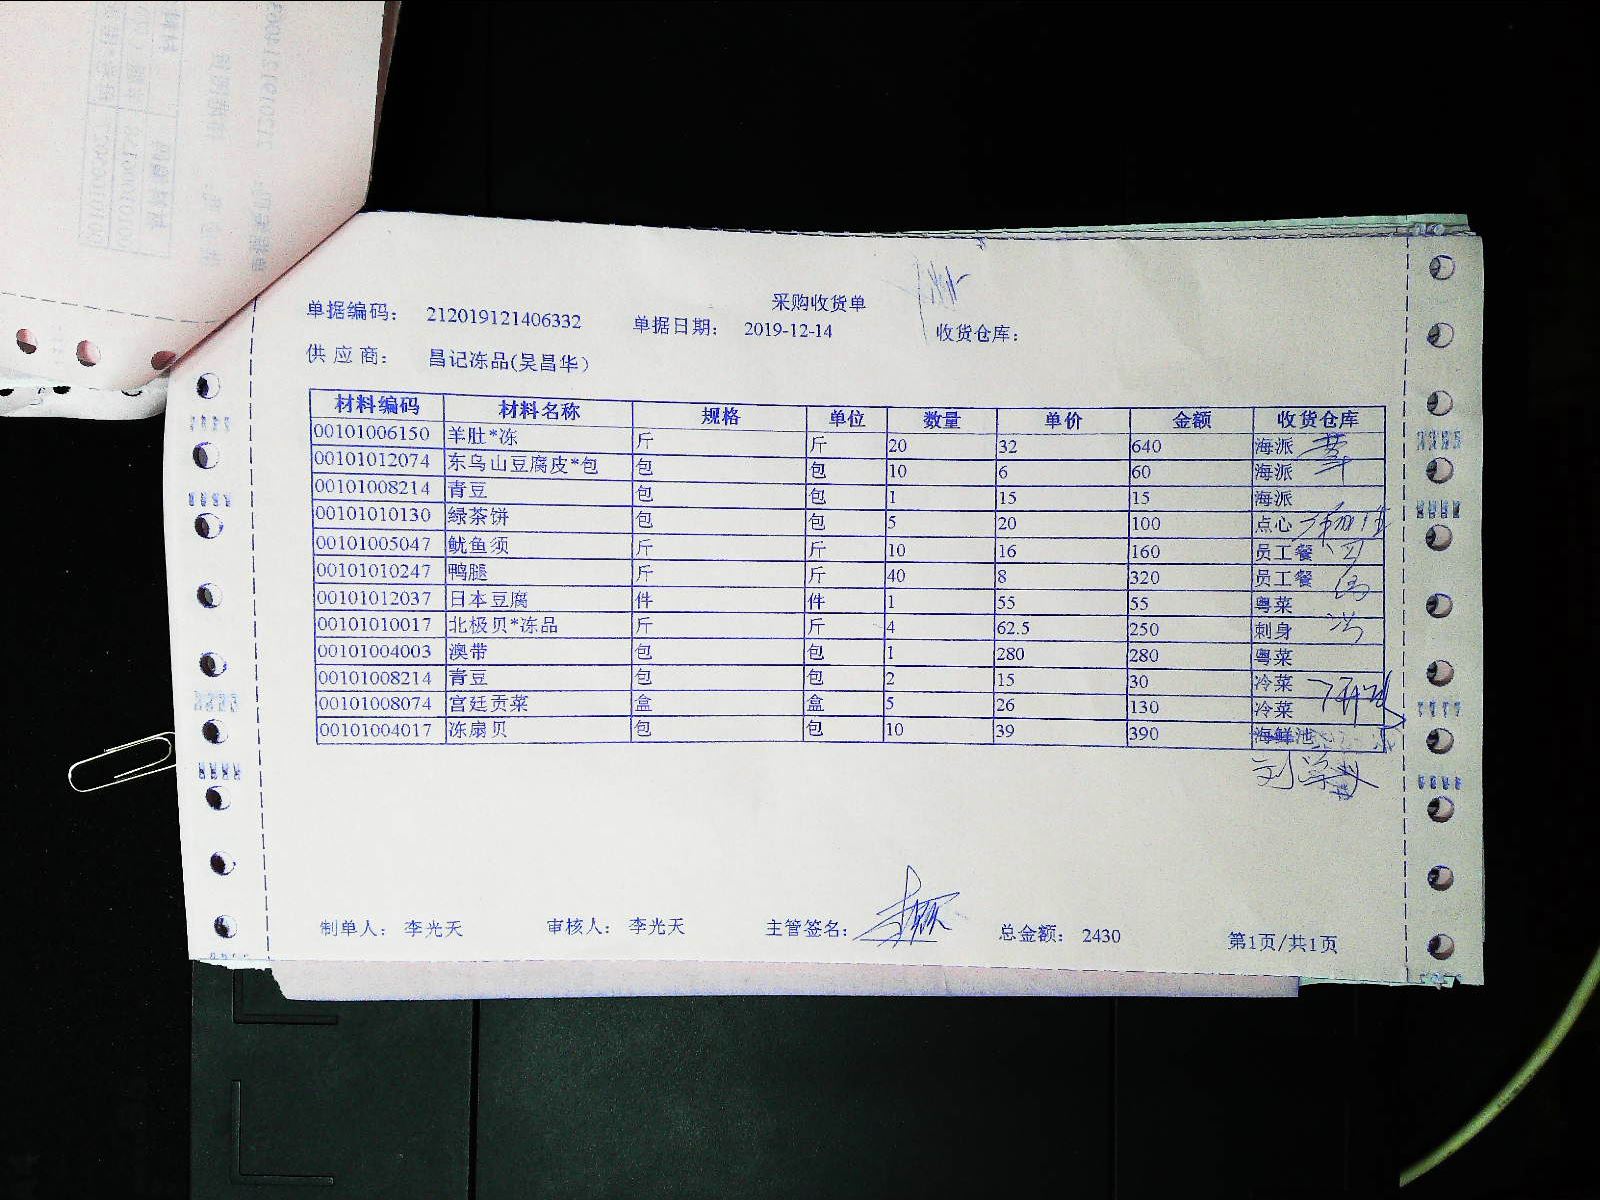 采购收货单
单据编码： 212019121406332 单据日期： 2019-12-14 收货仓库：
供 应 商： 昌记冻品(吴昌华）
材料编码 材料名称 规格 单位 数量 单价 金额 收货仓库
00101006150 羊肚*冻 斤 斤 20 32 640 海派
00101012074 东乌山豆腐皮*包 包 包 10 6 60 海派
00101008214 青豆 包 包 1 15 15 海派
00101010130 绿茶饼 包 包 5 20 100 点心
00101005047 鱿鱼须 斤 斤 10 16 160 员工餐
00101010247 鸭腿 斤 斤 40 8 320 员工餐
00101012037 日本豆腐 件 件 1 55 55 粤菜
00101010017 北极贝*冻品 斤 斤 4 62.5 250 刺身
00101004003 澳带 包 包 1 280 280 粤菜
00101008214 青豆 包 包 2 15 30 冷菜
00101008074 宫廷贡菜 盒 盒 5 26 130 冷菜
00101004017 冻扇贝 包 包 10 39 390 海鲜池
制单人： 李光天 审核人： 李光天 主管签名： 总金额： 2430 第1页/共1页